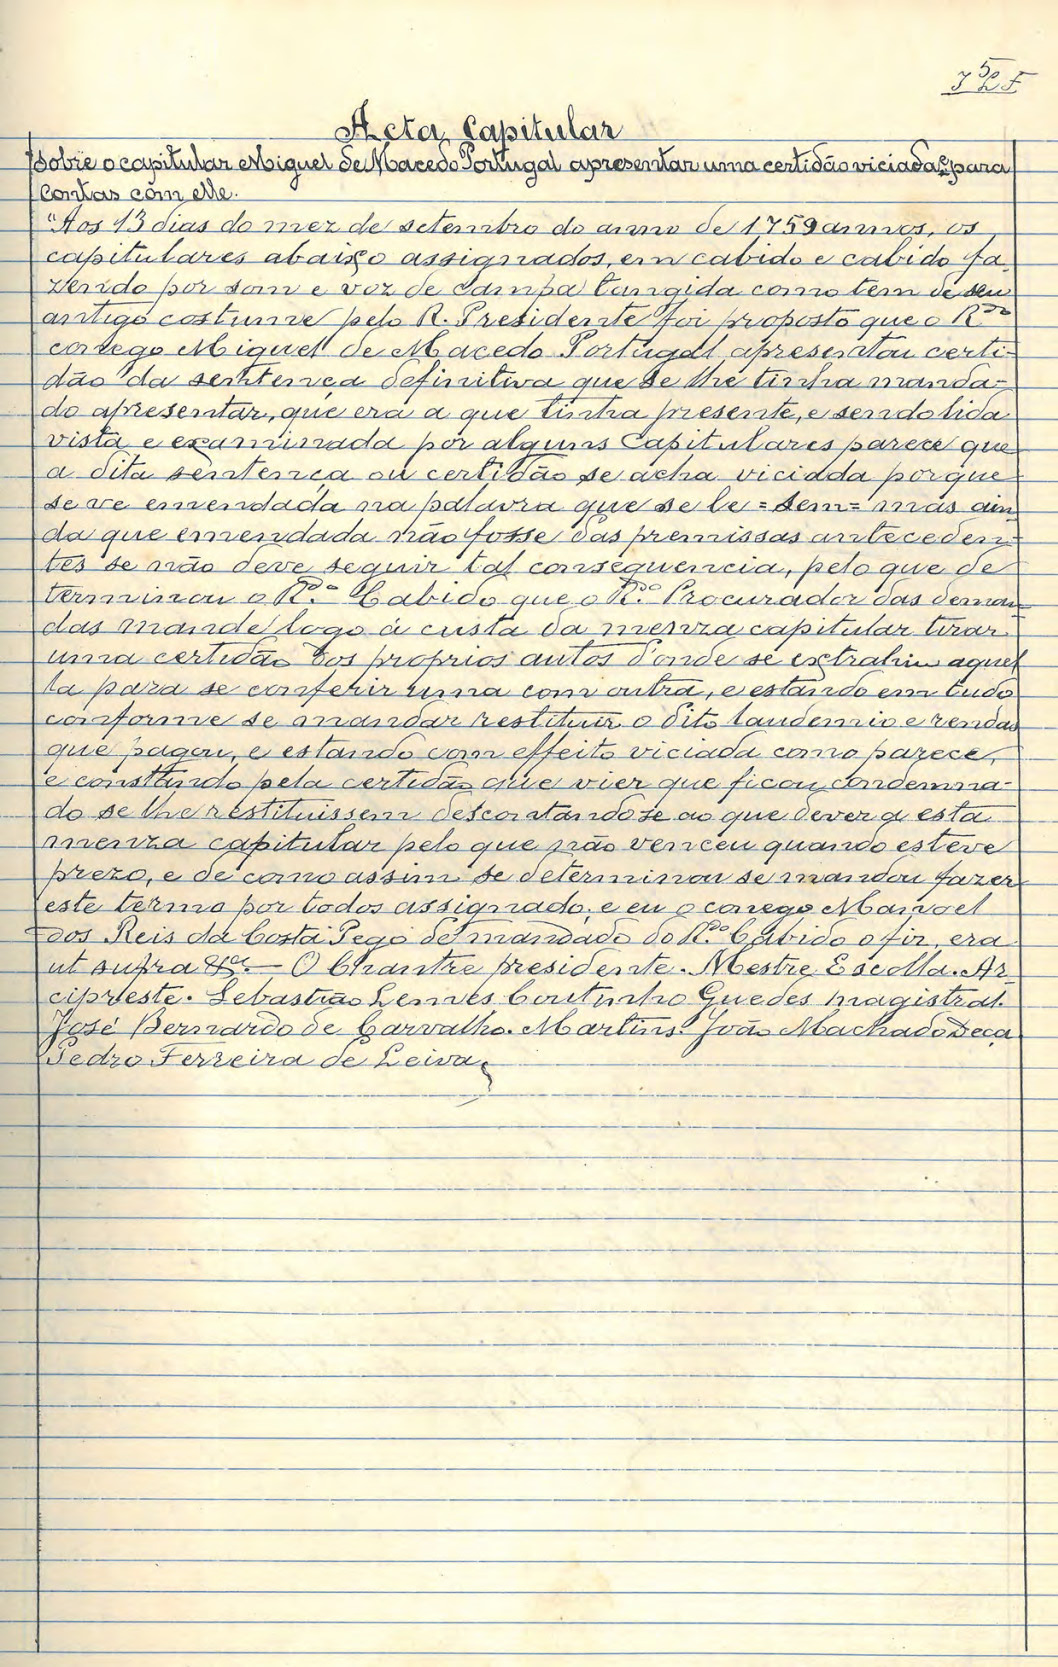 Acta Capitular
Sobre o capitular Miguel de Macedo Portugal apresentar uma certidão viciada para
contas com elle.
"Aos 13 dias do mez de setembro do anno de 1759 annos, os
capitulares abaixo assignados, em cabido e cabido fa-
zendo por som e voz de campa tangida como tem de seu
antigo costume pelo R. Presidente foi proposto que o R.do
conego Miguel de Macedo Portugal apresentou certi-
dão da sentença definitiva que se lhe tinha manda-
do apresentar, que era a que tinha presente, e sendo lida
vista e examinada por alguns Capitulares parece que
a dita sentença ou certidão se acha viciada porque
se ve emendada na palavra que se le = sem = mas ain
da que emendada não fosse das premissas anteceden-
tes se não deve seguir tal consequencia, pelo que de
terminou o R.do Cabido que o R.do Procurador das deman
das mande logo á custa da menza capitular tirar
uma certidão dos proprios autos d'onde se extrahiu aquel
la para se conferir uma com outra, e estando em tudo
conforme se mandar restituir o dito laudemio e rendas
que pagou, e estando com effeito viciada como parece,
e constando pela certidão que vier que ficou condemna-
do se lhe restituissem descontando-se ao que dever a esta
menza capitular pelo que não venceu quando esteve
prezo, e de como assim se determinou se mandou fazer
este termo por todos assignado, e eu o conego Manoel
dos Reis da Costa Pego de mandado do R.do Cabido o fiz, era
ut supra &ª. — O Chantre presidente. Mestre Escolla. Ar
cipreste. Sebastião Lemves Coutinho Guedes magistral.
José Bernardo de Carvalho. Martins. João Machado Deça
Pedro Ferreira de Leiva.